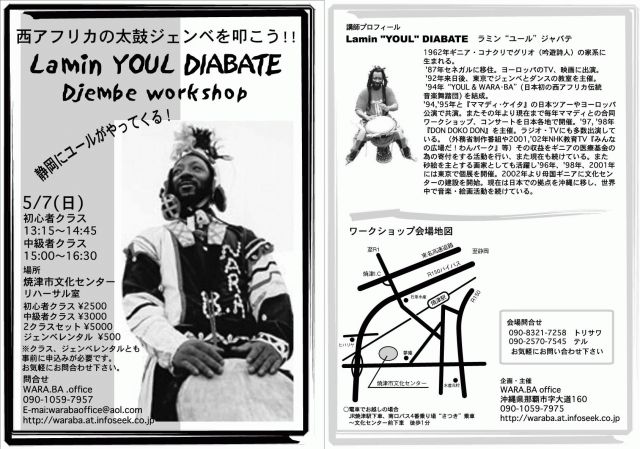 西アフリカの太鼓ジェンベを叩こう!!
Lamin YOUL DIABATE
Djembe workshop
静岡にユールがやってくる!
5/7(日)
初心者クラス
13:15〜14:45
中級者クラス
15:00〜16:30
場所
焼津市文化センター
リハーサル室
初心者クラス ¥2500
中級者クラス ¥3000
2クラスセット ¥5000
ジェンベレンタル ¥500
※クラス、ジェンベレンタルとも
事前に申込みが必要です。
お気軽にお問合わせ下さい。
問合せ
WARA.BA .office
090-1059-7957
E-mai:warabaoffice@aol.com
http://waraba.at.infoseek.co.jp
WARA
BA
講師プロフィール
Lamin "YOUL" DIABATE ラミン“ユール”ジャバテ
1962年ギニア・コナクリでグリオ（吟遊詩人）の家系に
生まれる。
'87年セネガルに移住。ヨーロッパのTV、映画に出演。
'92年来日後、東京でジェンベとダンスの教室を主催。
'94年 “YOUL & WARA・BA”(日本初の西アフリカ伝統
音楽舞踏団)を結成。
'94,'95年と『ママディ・ケイタ』の日本ツアーやヨーロッパ
公演で共演。またその年より現在まで毎年ママディとの合同
ワークショップ、コンサートを日本各地で開催。'97, '98年
『DON DOKO DON』を主催。ラジオ・TVにも多数出演して
いる。（外務省制作番組や2001,'02年NHK教育TV『みんな
の広場だ！わんパーク』等）その収益をギニアの医療基金の
為の寄付をする活動を行い、また現在も続けている。また
砂絵を主とする画家としても活躍し'96年、'98年、2001年
には東京で個展を開催。2002年より母国ギニアに文化セン
ターの建設を開始。現在は日本での拠点を沖縄に移し、世界
中で音楽・絵画活動を続けている。
ワークショップ会場地図
至R1
東名高速道路
至静岡
焼津I.C
R150バイパス
焼津駅
R150
石原水産
ヒバリヤ
焼津市文化センター
会場問合せ
090-8321-7258 トリサワ
090-2570-7545 テル
お気軽にお問い合わせ下さい
企画・主催
WARA.BA office
沖縄県那覇市字大道160
090-1059-7975
http://waraba.at.infoseek.co.jp
○電車でお越しの場合
JR焼津駅下車、南口バス4番乗り場 “さつき” 乗車
〜文化センター前下車 徒歩1分